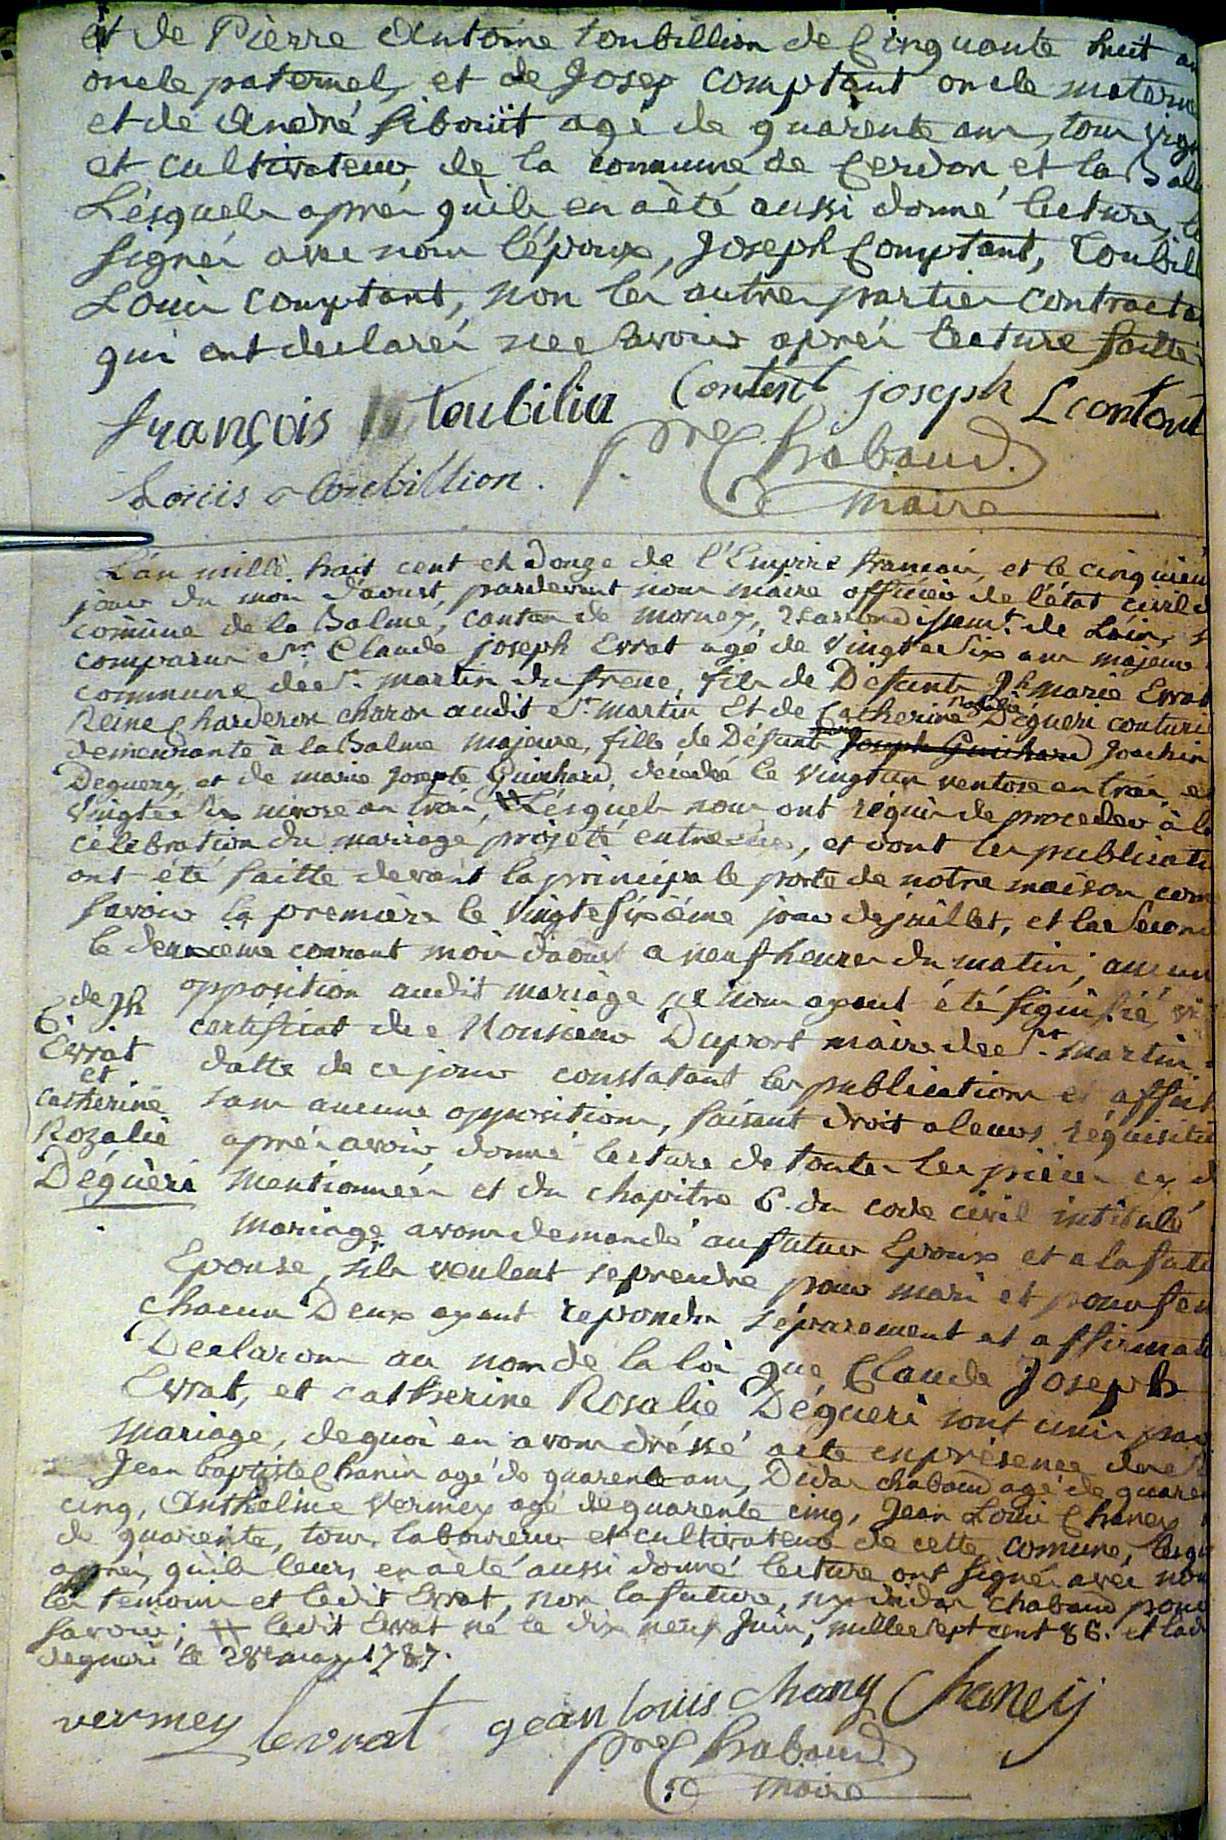 et de Pierre Antoine toubillion de Cinquante huit an
oncle paternel, et de Josep Comptant oncle materne
et de André Sibouït agé de quarente ans, tous vign
et cultivateurs de la commune de Cerdon et la Bal
Lésquels aprés qu'ils en aété aussi donné lecture,
signés avec nous l'époux, Joseph Comptant, Toubill
Louis Comptant, non les autres parties contracta
qui ont declarés ne savoir aprés lecture faitte
françois toubilia Content joseph L contant
Louis toubillion. pre Chabaud.
maire
L'an mille huit cent et douze de l'Empire francais, et le cinquiem
jour du mois d'aoust, pardevant nous maire officier de l'état civil d
comune de la Balme, canton de mornex, de Lain,
comparus Sr. Claude joseph Evrat agé de Vingtesix ans majeur
commune de St. martin du frene, fils de Défunts Jh marie Evrat
Reine Charderon charon audit St martin Et de Catherine Rosalie Dégueri couturi
demeurante à la Balme majeure, fille de Défunts Joseph Guichard Joachin
Deguery, et de marie Josepte Guichard, décedé le Vingtun ventose an trois, et
Vingte six nivose an trois, # Lésquels nous ont réquis de proceder à la
célébration du mariage projeté entre eux, et dont les publicati
ont été faitte devant la principale porte de notre maison com
savoir la premiere le Vingtesixiéme jour de juillet, et la secon
le deuxiéme courant mois daoust a neuf heures du matin; aucun
opposition audit mariage ne nous ayant été signifié, vû
certificat de Monsieur Duport maire de St. martin
datte de ce jour constatant les publications et affich
sans aucune opposition, faisant droit a leurs réquisiti
aprés avoir donné lecture de toutes les piéces cy d
mentionnées et du chapitre 6. du code civil intitulé
mariage avons demandé au futur Epoux et a la futu
Epouse, s'ils veulent se prendre pour mari et pour fem
chacun Deux ayant repondu séparement et affirmati
Declarons au nom de la loi que Claude Joseph
Evrat, et catherine Rosalie Dégueri sont unis par
mariage, de quoi en avons dréssé acte en présence de
Jean baptiste Chanin agé de quarente ans, Didas chabaud agé de quaren
cinq, Anthelme Vermey agé de quarente cinq, Jean Louis Chaney
de quarente, tous laboureur et cultivateur de cette comune, lesqu
aprés qu'ils leurs en aété aussi donné lecture ont signés avec nou
les temoins et ledit Evrat, non la future, ny didas Chabaud pour
savoir; # ledit Evrat né le dix neuf Juin, mille sept cent 86. et lad
degueri le 28e may 1787.
C. de Jh
Evrat
et
Catherine
Rozalie
Déguèri
vermey levrat jean louis chany Chaney
pre Chabaud
maire